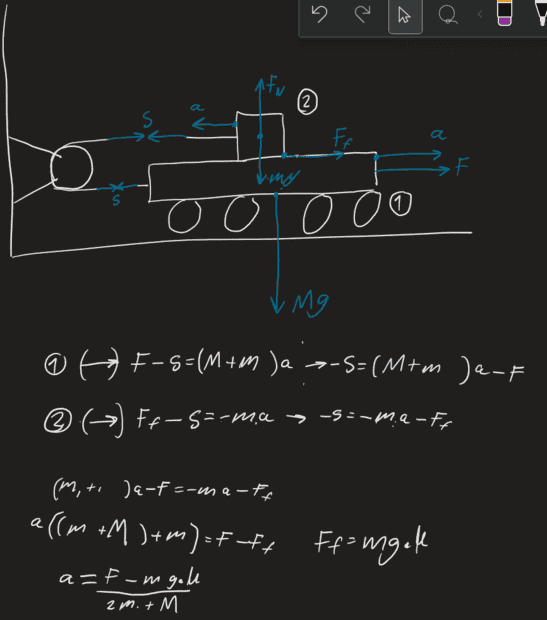 F_N
②
a
S
F_f
a
F
mg
S
①
Mg
① (→) F-S=(M+m )a →-S=(M+m )a-F
② (→) F_f-S=-m.a → -S=-m.a-F_f
(m,+, )a-F=-ma-F_f
a((m+M)+m)=F-F_f F_f=mg.μ
a=F-mg.μ
2m.+M